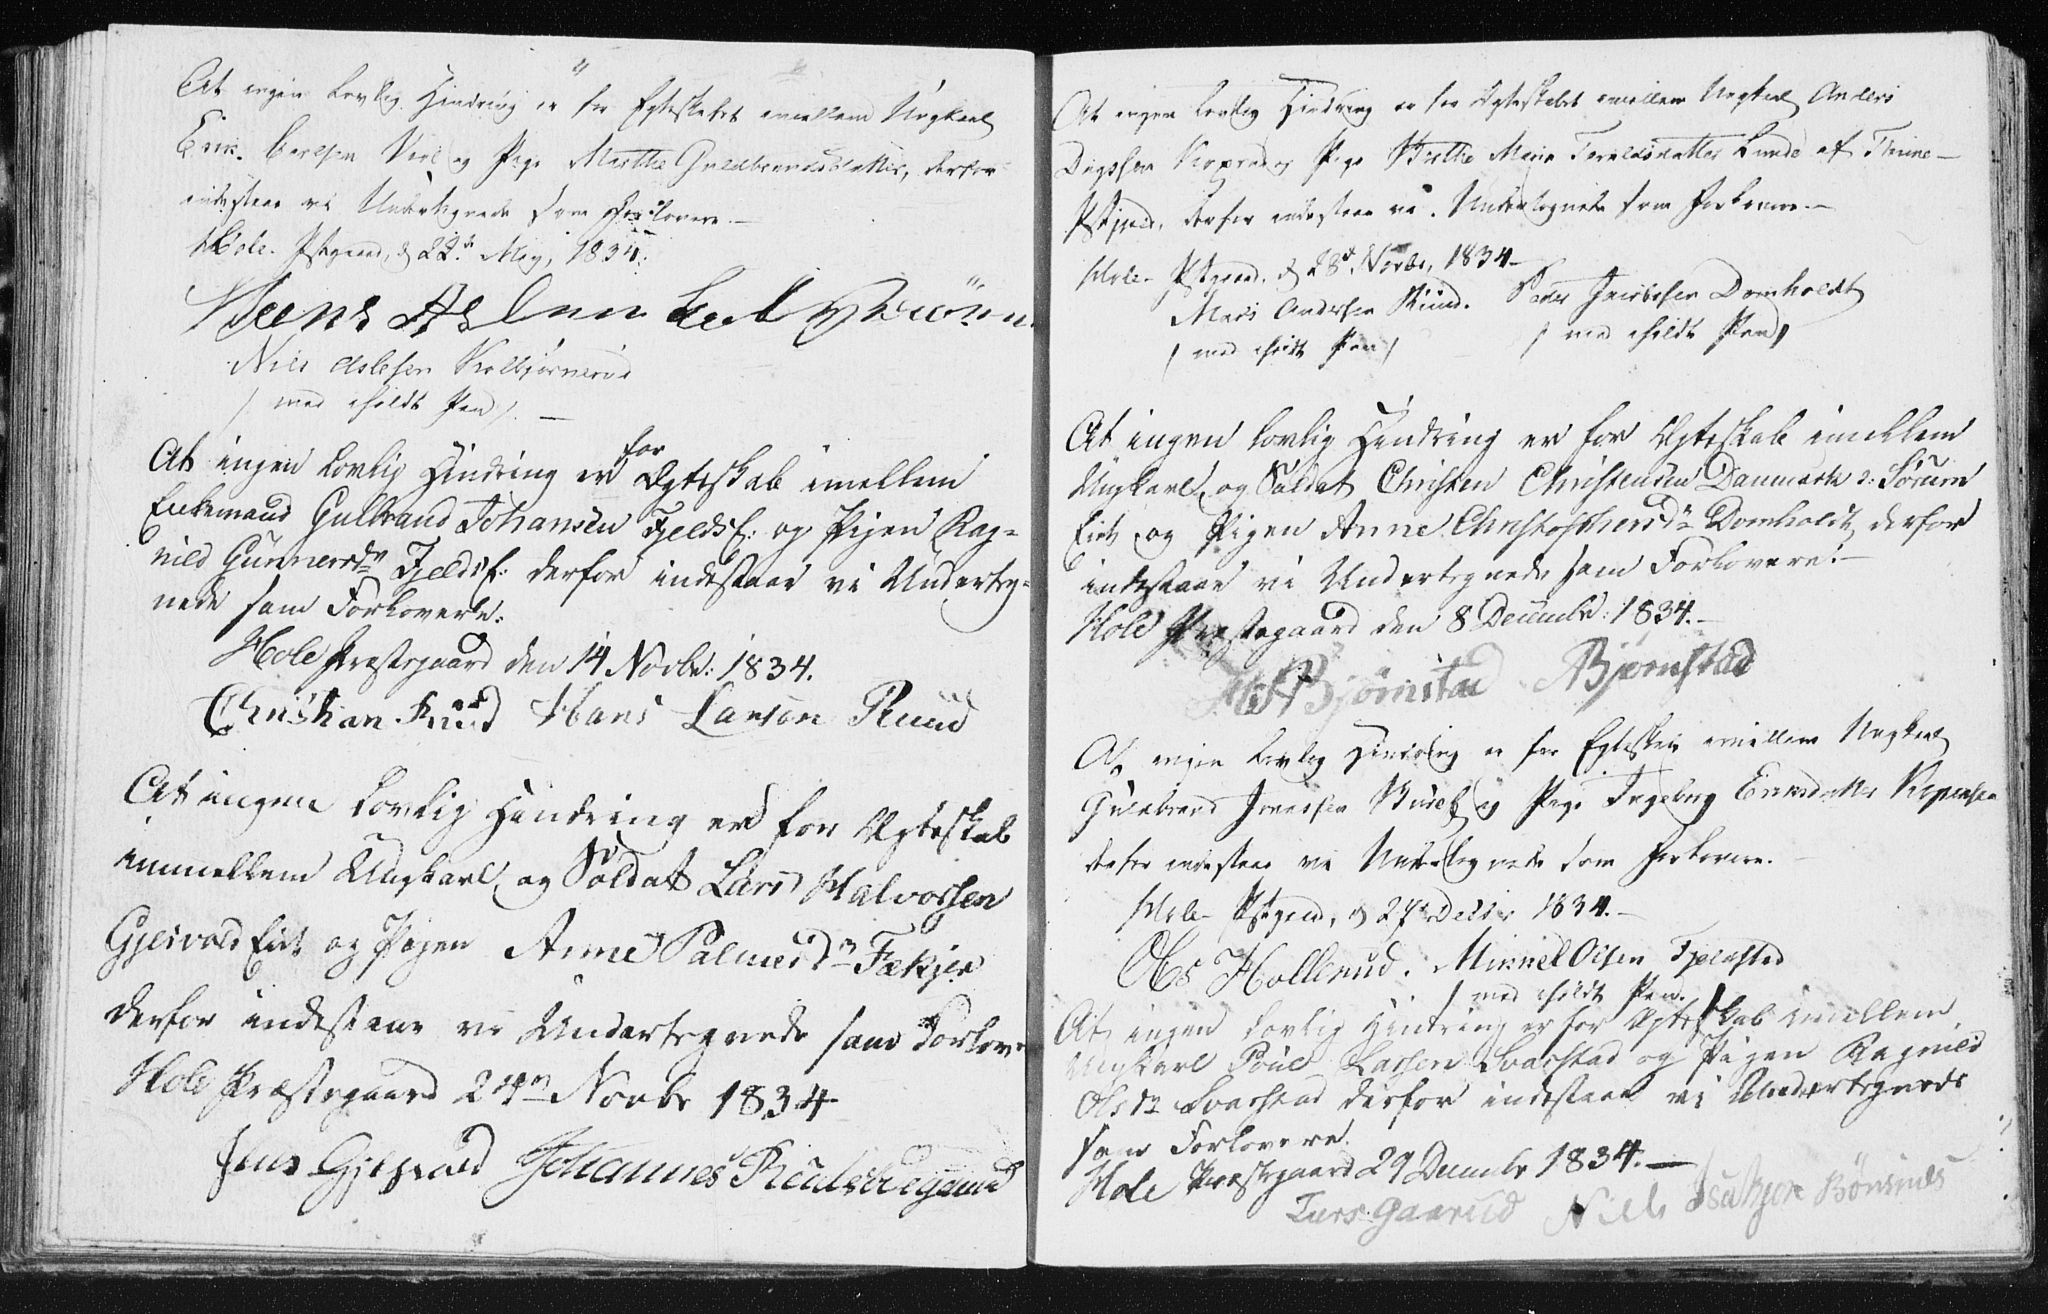 At ingen Lovlig Hindring er for Egteskabet emellem Ungkarl
Erik Carlsen Viel og Pige Marthe Guldbrandsdatter, derfor
indestaae vi Undertegnede som Forlovere.
Hole Pstgaard, d 22de May, 1834.
Niels Aslesen Kolbjørnrud
/ med iholdt Pen /. —
At ingen Lovlig Hindring er for Ægteskab imellem
Enkemand Gulbrand Johansen Fjelds: og Pigen Rag=
nild Gunnersdr Fjelds: derfor indestaar vi Underteg=
nede som Forlovere.
Hole Præstegaard den 14 Novbr: 1834.
Christian Ruud Hans Larsen Ruud
At ingen Lovlig Hindring er for Ægteskab
immellem Ungkarl og Soldat Lars Halvorsen
Gjesvold Eiet og Pigen Anne Palmesdr Fækjer
derfor indestaae vi Undertegnede som Forlove
Hole Præstegaard 24n Novbr 1834
Jens Gjesvold Johannes
At ingen Lovlig Hindring er for Ægteskabet emellem Ungkarl Anders
Pige Birthe Maria Tereldsdatter Lunde af
Pstgjeld, derfor indestaae vi Undertegnede som Forlovere.—
Hole Pstgaard, d 28de Novbr, 1834—
Mads Andersen Ruud. Peder Jacobsen Domholdt
/ med iholdt Pen / / med iholdt Pen /
At ingen Lovlig Hindring er for Ægteskab imellem
Ungkarl og Soldat Christen Christensen Danmark s: Sørum
Eiet og Pigen Anne Christophersdr Domholdt, derfor
indestaaer vi Undertegnede som Forlovere.—
Hole Præstegaard den 8 Decembr: 1834.—
Bjørnstad ABjørnstad
At ingen Lovlig Hindring er for Egteskab emellem Ungkarl
Guldbrand Jonassen og Pige Ingeborg Eriksdatter
derfor indestaae vi Undertegnede som Forlovere.—
Hole Pstgaard, d 27de Decbr 1834.—
Ols Hollerud. Mikkel Olsen Fjeldstad
/ med iholdt Pen. /
At ingen Lovlig Hindring er for Ægteskab imellem
Ungkarl Poul Larsen Svarstad og Pigen Ragnild
Olsdr Svarstad derfor indestaae vi Undertegnede
som Forlovere.
Hole Præstegaard 29 Decembr 1834.—
Lars Gaarud Niels